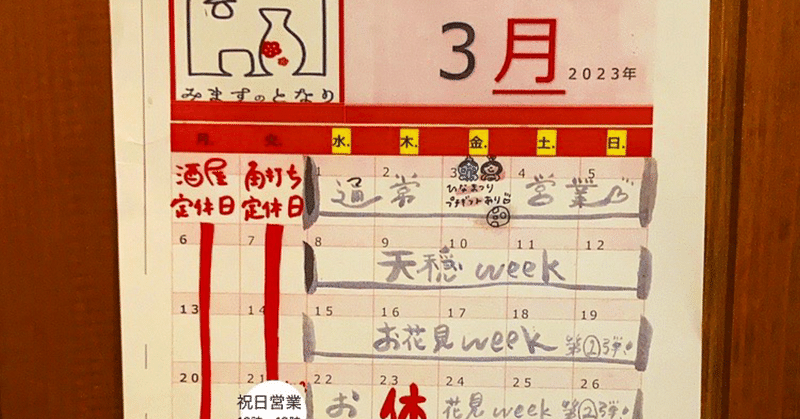 みますのとなり
3月 2023年
月. 火. 水. 木. 金. 土. 日.
酒屋 角打ち 1 2 3 4 5
定休日 定休日 通常 営業
ひなまつり
プチギフトあり
6 7 8 9 10 11 12
天穏 week
13 14 15 16 17 18 19
お花見 week 第①弾!
20 21 22 23 24 25 26
祝日営業
お 休 花見 week 第②弾